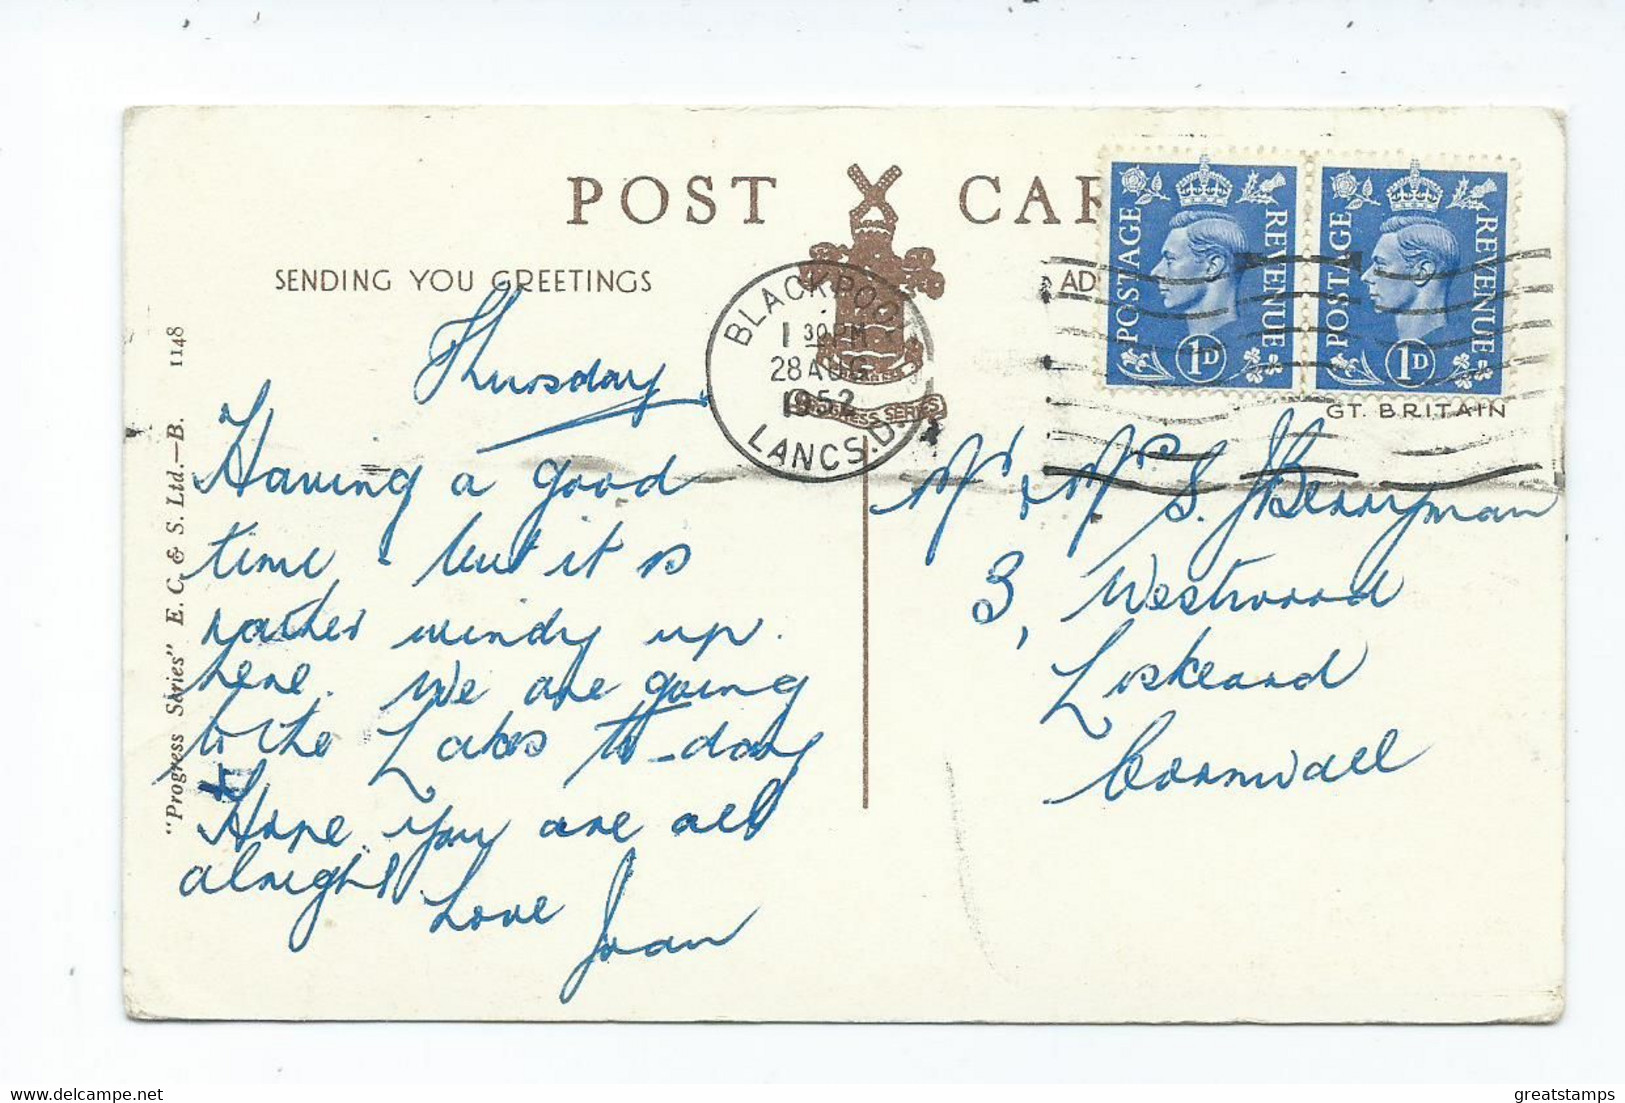 POST CAR
SENDING YOU GREETINGS
AD
BLACKPOOL
1 30 PM
28 AUG
1952
LANCS.D
PROGRESS SERIES
POSTAGE REVENUE
1D
POSTAGE REVENUE
1D
GT. BRITAIN
"Progress Series" E. C. & S. Ltd.—B. 1148
Thursday
Having a good
time - but it is
rather windy up
here. We are going
to the Lakes to-day
Hope you are all
alright
Love
Joan
Mr & Mrs S. Berryman
3, Westwood
Liskeard
Cornwall
greatstamps